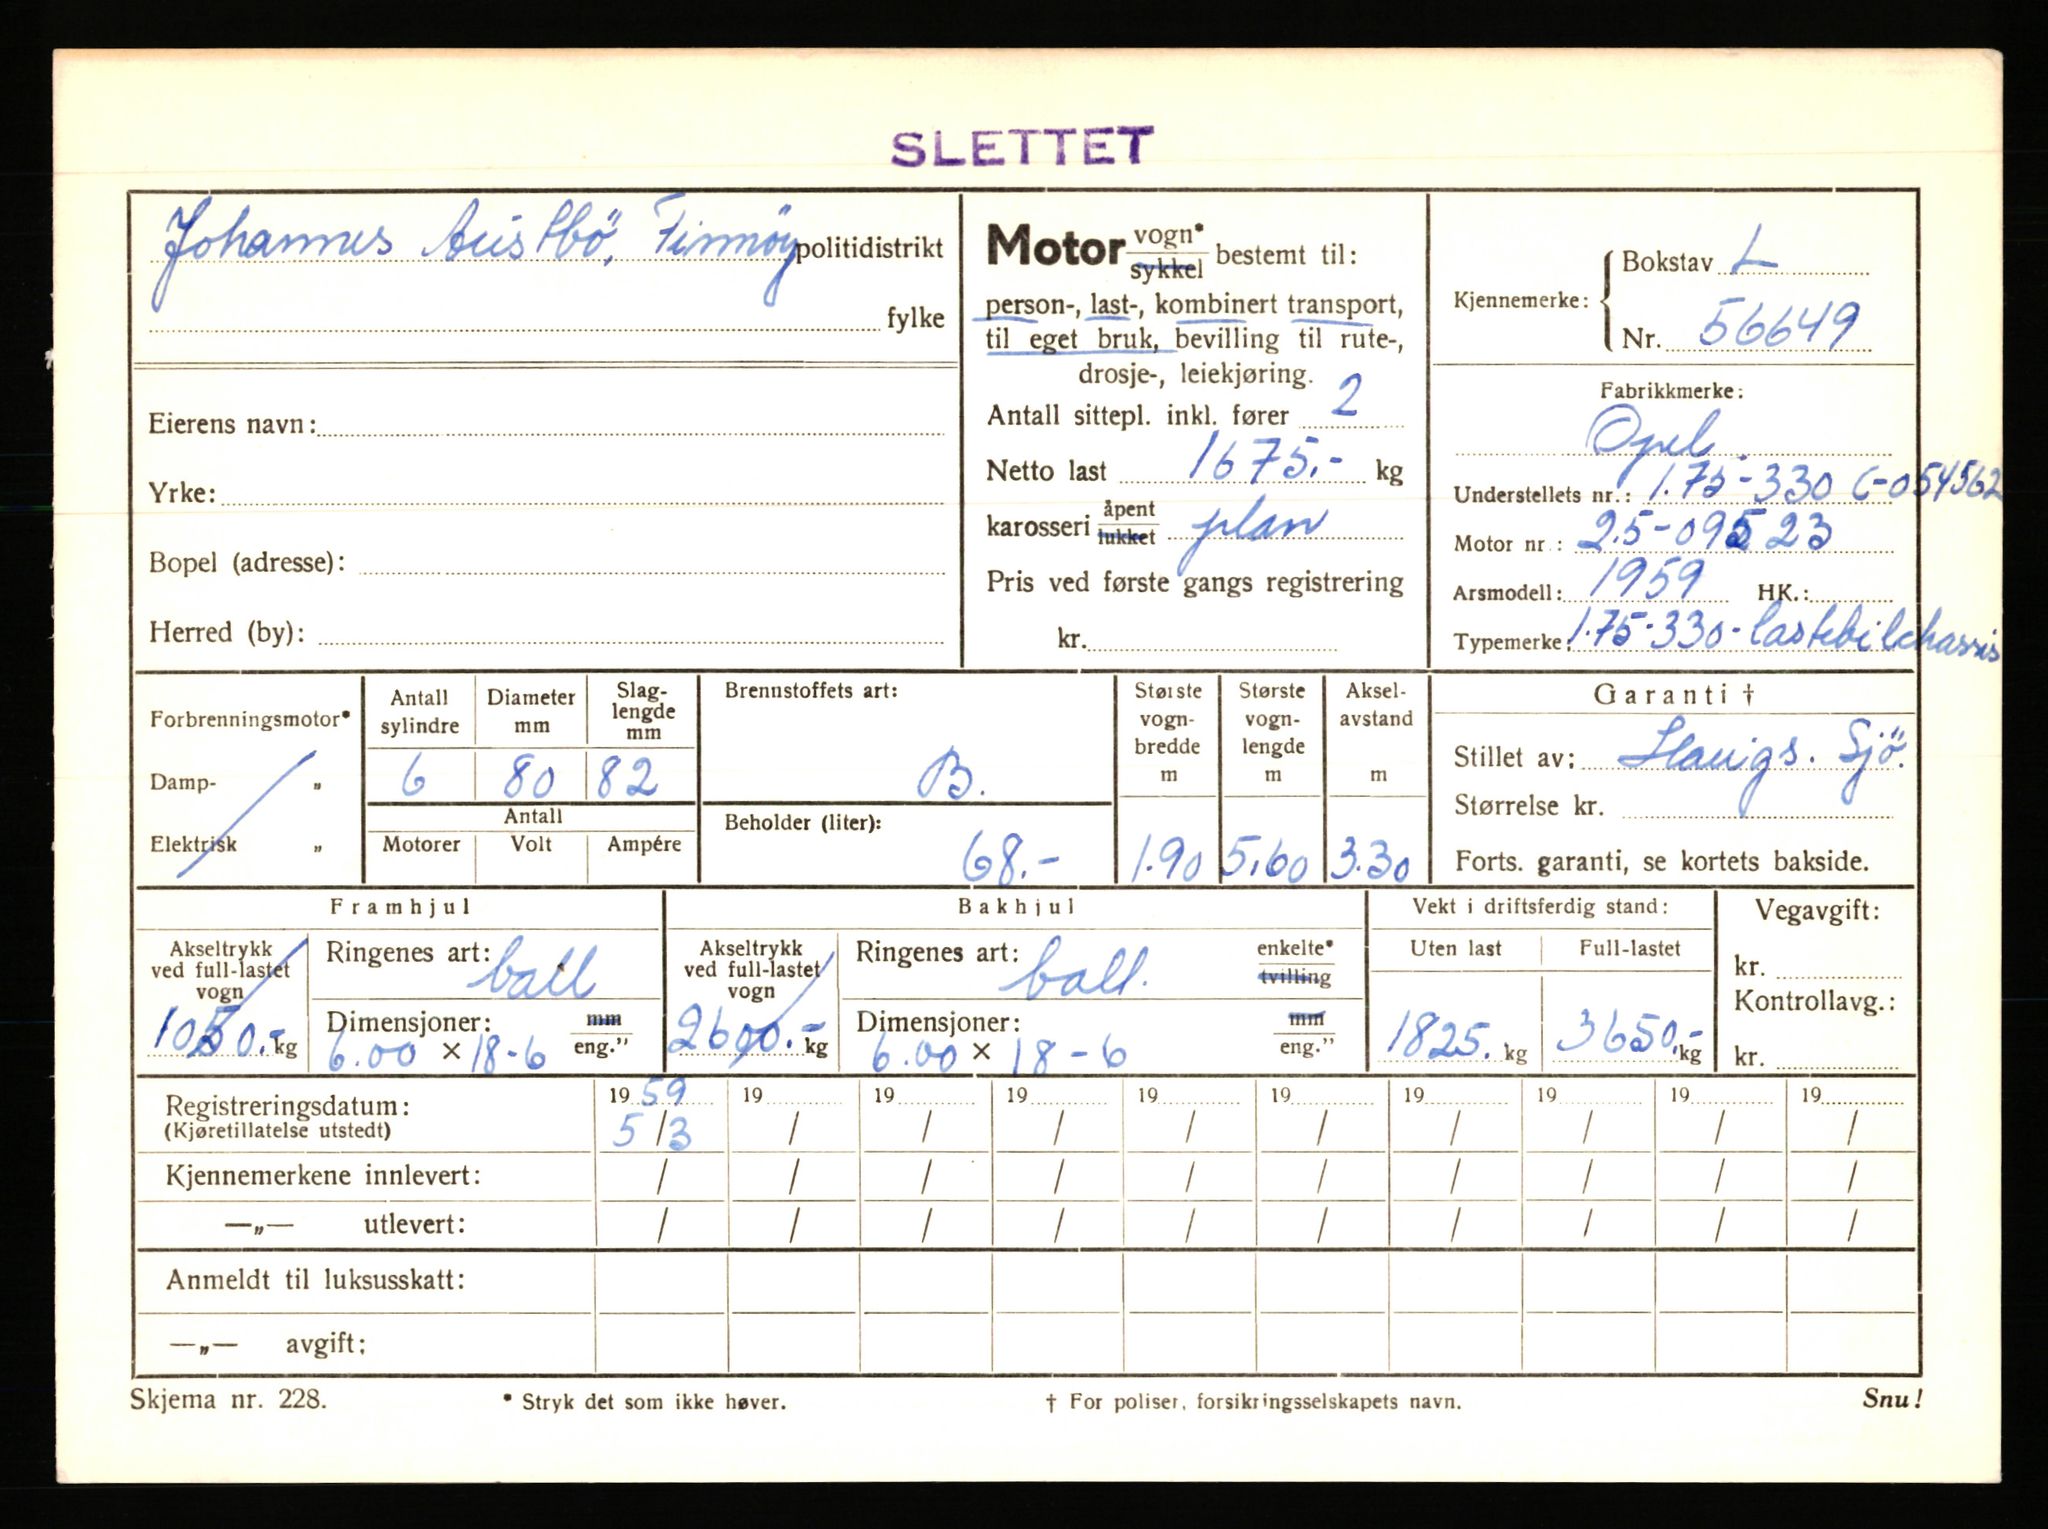 SLETTET
Johannes Austbö, Finnöy politidistrikt
fylke
Eierens navn:
Yrke:
Bopel (adresse):
Herred (by):
Motor vogn* sykkel bestemt til:
person-, last-, kombinert transport,
til eget bruk, bevilling til rute-,
drosje-, leiekjøring.
Antall sittepl. inkl. fører 2
Netto last 1675.- kg
karosseri åpent lukket plan
Pris ved første gangs registrering
kr.
Kjennemerke: Bokstav L
Nr. 56649
Fabrikkmerke:
Opel.
Understellets nr.: 1.75-330 6-054562
Motor nr.: 2.5-095523
Arsmodell: 1959 HK.:
Typemerke: 1.75-330-lastebilchassis
Forbrenningsmotor*
Damp- „
Elektrisk „
Antall sylindre
Diameter mm
Slag-lengde mm
6 80 82
Antall
Motorer Volt Ampére
Brennstoffets art:
B.
Beholder (liter):
68.-
Største vogn-bredde m
1.90
Største vogn-lengde m
5.60
Aksel-avstand m
3.30
Garanti †
Stillet av: Haugs. Sjö.
Størrelse kr.
Forts. garanti, se kortets bakside.
Framhjul
Akseltrykk
ved full-lastet
vogn
1050.- kg
Ringenes art: ball
Dimensjoner: mm
6.00 × 18-6 eng.”
Bakhjul
Akseltrykk
ved full-lastet
vogn
2600.- kg
Ringenes art: ball. enkelte* tvilling
Dimensjoner: mm
6.00 × 18-6 eng.”
Vekt i driftsferdig stand:
Uten last Full-lastet
1825. kg 3650.- kg
Vegavgift:
kr.
Kontrollavg.:
kr.
19 59 19 19 19 19 19 19 19 19 19
Registreringsdatum: 5/3 / / / / / / / / /
(Kjøretillatelse utstedt)
Kjennemerkene innlevert: / / / / / / / / / /
—„— utlevert: / / / / / / / / / /
Anmeldt til luksusskatt:
—„— avgift:
Skjema nr. 228. * Stryk det som ikke høver. † For poliser, forsikringsselskapets navn. Snu!